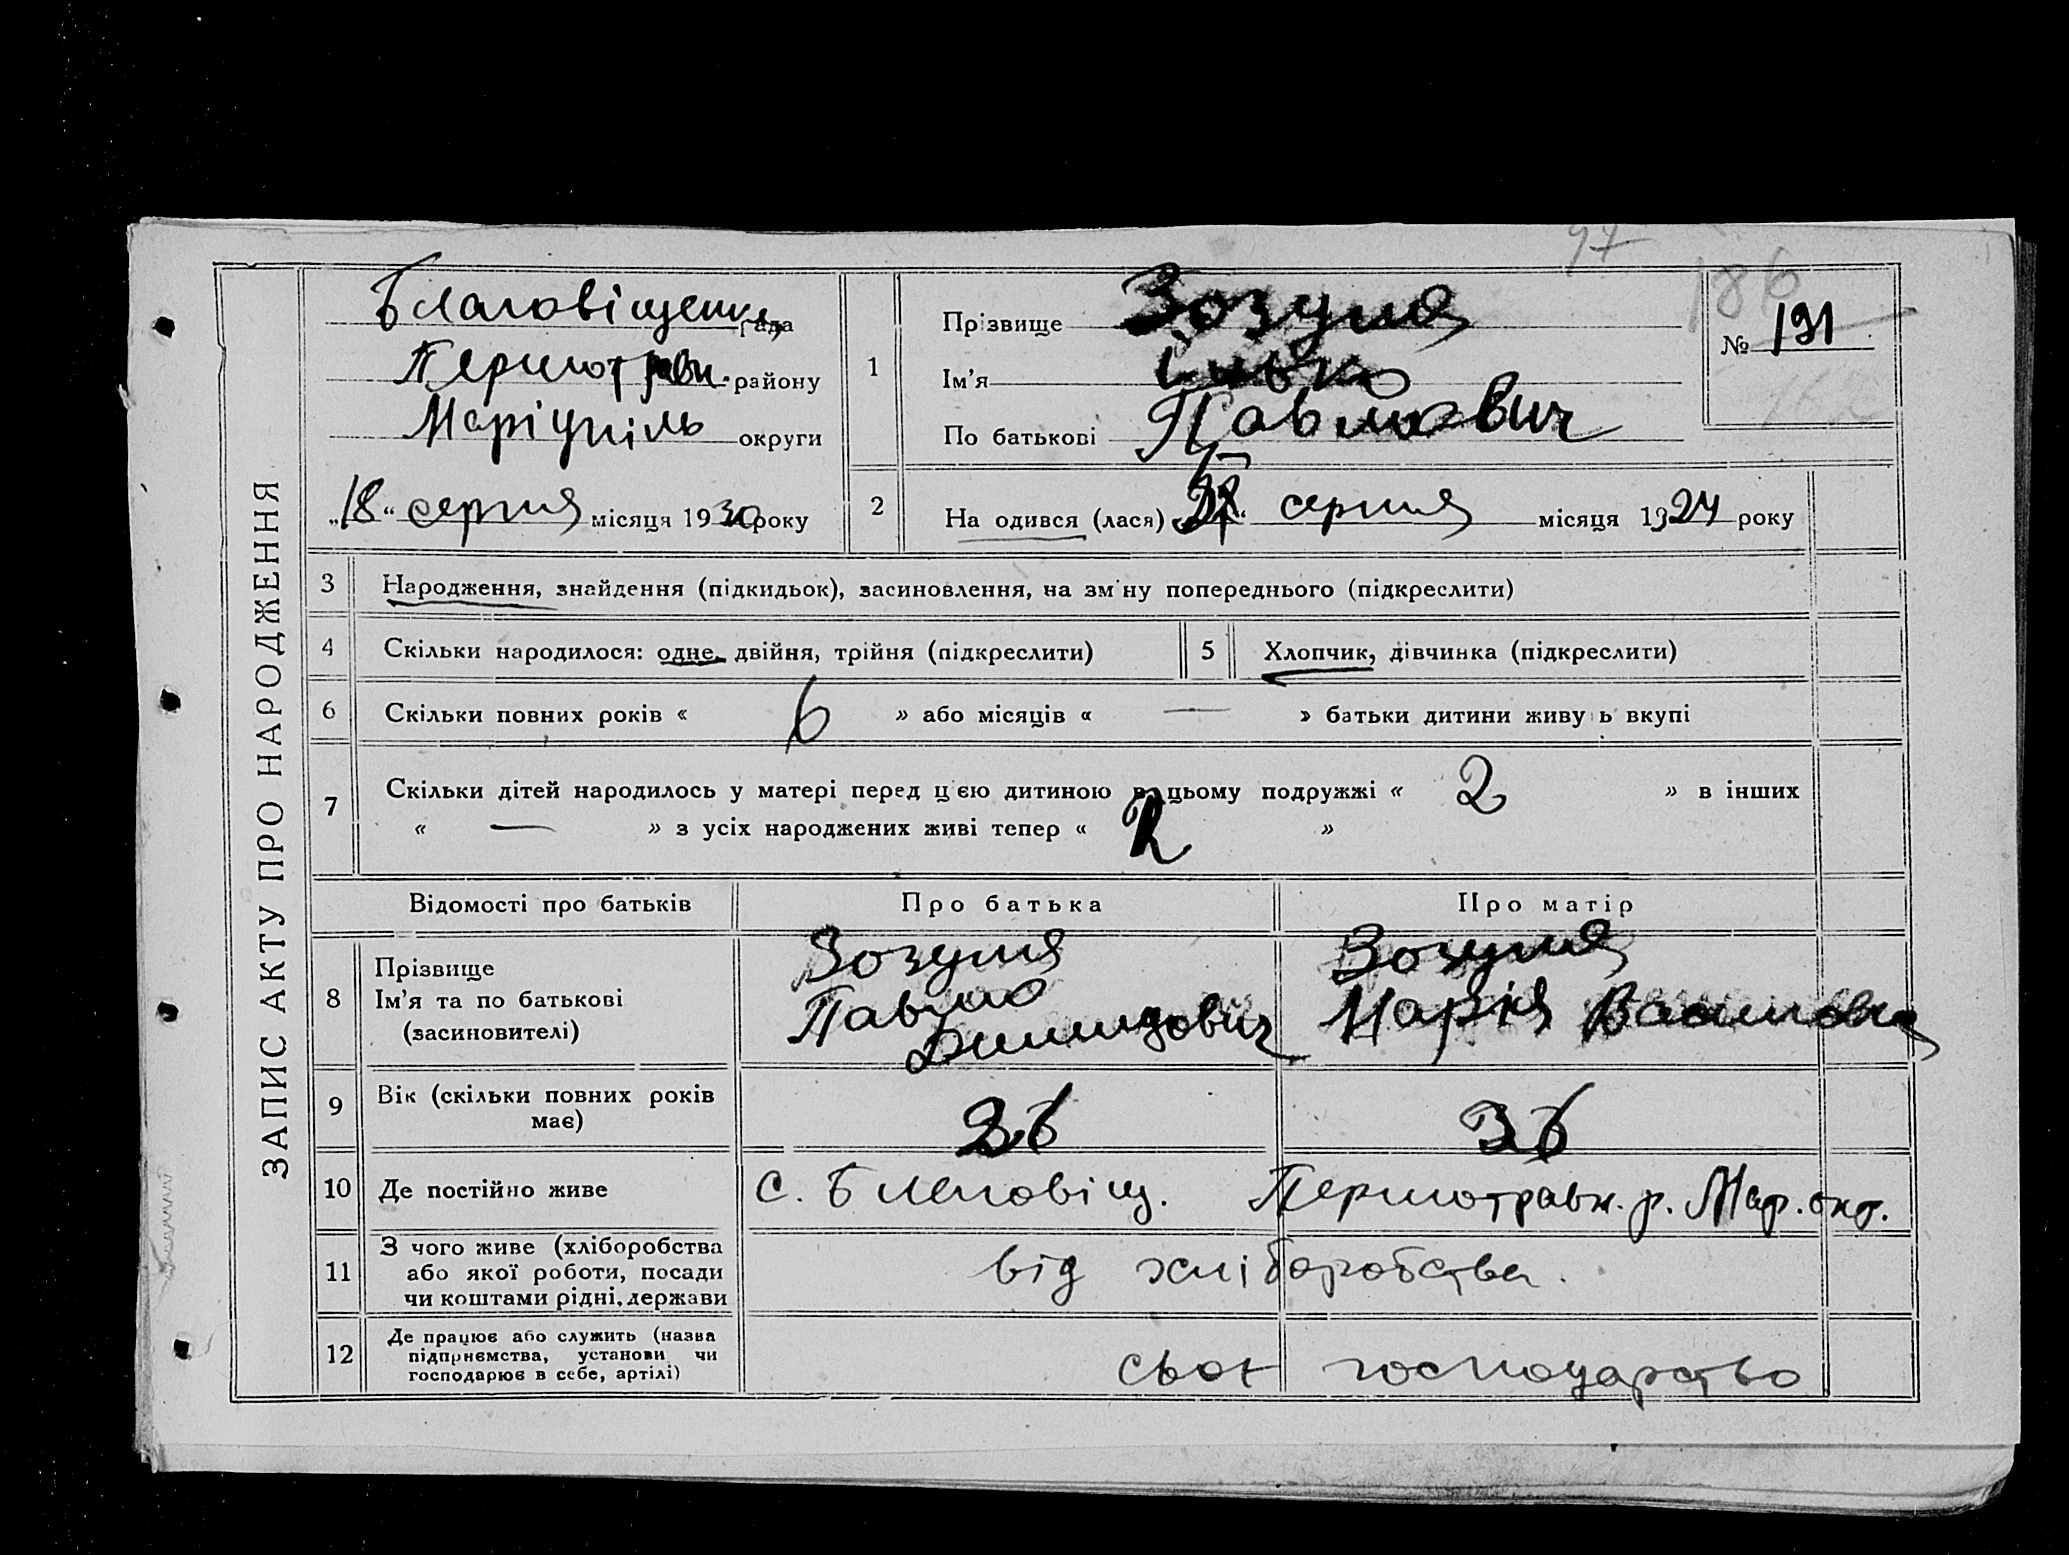 97
186
ЗАПИС АКТУ ПРО НАРОДЖЕННЯ
Благовіщенк. рада
Першотравн. району
Маріупіль округи
„18“ серпня місяця 1930 року
1
Прізвище Зозуля
Ім'я
По батькові Павлович
№ 191
2
На одився (лася) серпня місяця 1924 року
3 Народження, знайдення (підкидьок), засиновлення, на зм ну попереднього (підкреслити)
4 Скільки народилося: одне, двійня, трійня (підкреслити) 5 Хлопчик, дівчинка (підкреслити)
6 Скільки повних років « 6 » або місяців « — » батьки дитини живу ь вкупі
7 Скільки дітей народилось у матері перед ц єю дитиною в цьому подружжі « 2 » в інших
« — » з усіх народжених живі тепер « 2 »
Відомості про батьків Про батька Про матір
8 Прізвище Ім'я та по батькові (засиновителі)
Зозуля Павло
Зозуля Марія
9 Вік (скільки повних років має) 36 36
10 Де постійно живе с. Благовіщ. Першотравн. р. Мар. окр.
11 З чого живе (хліборобства або якої роботи, посади чи коштами рідні, держави від хліборобства.
12 Де працює або служить (назва підприємства, установи чи господарює в себе, артілі) своє господарство